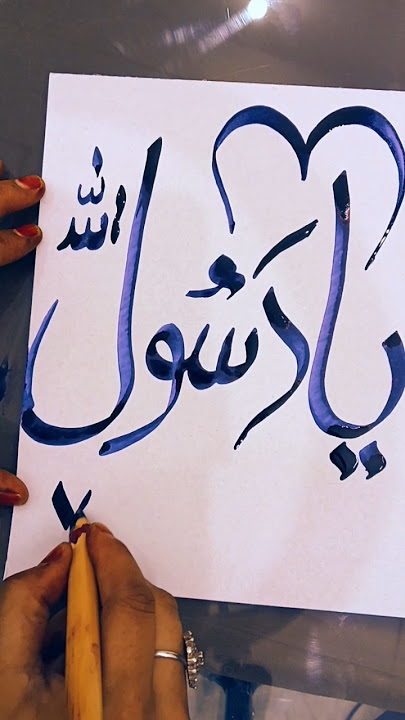 يا رسُول الله